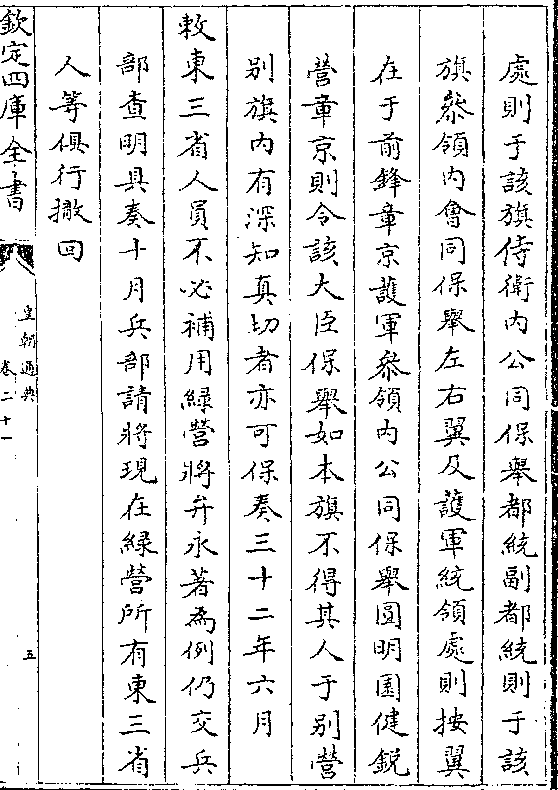 處則于該旗侍衛内公同保舉都統副都統則于該
旗叅領内會同保舉左右翼及護軍統領處則按翼
在于前鋒章京護軍叅領内公同保舉圓明園健鋭
營章京則令該大臣保舉如本旗不得其人于别營
别旗内有深知真切者亦可保奏三十二年六月
敕東三省人員不必補用緑營將弁永著為例仍交兵
部查明具奏十月兵部請將現在緑營所有東三省
人等俱行撤回
欽定四庫全書
皇朝通典
卷二十一
五